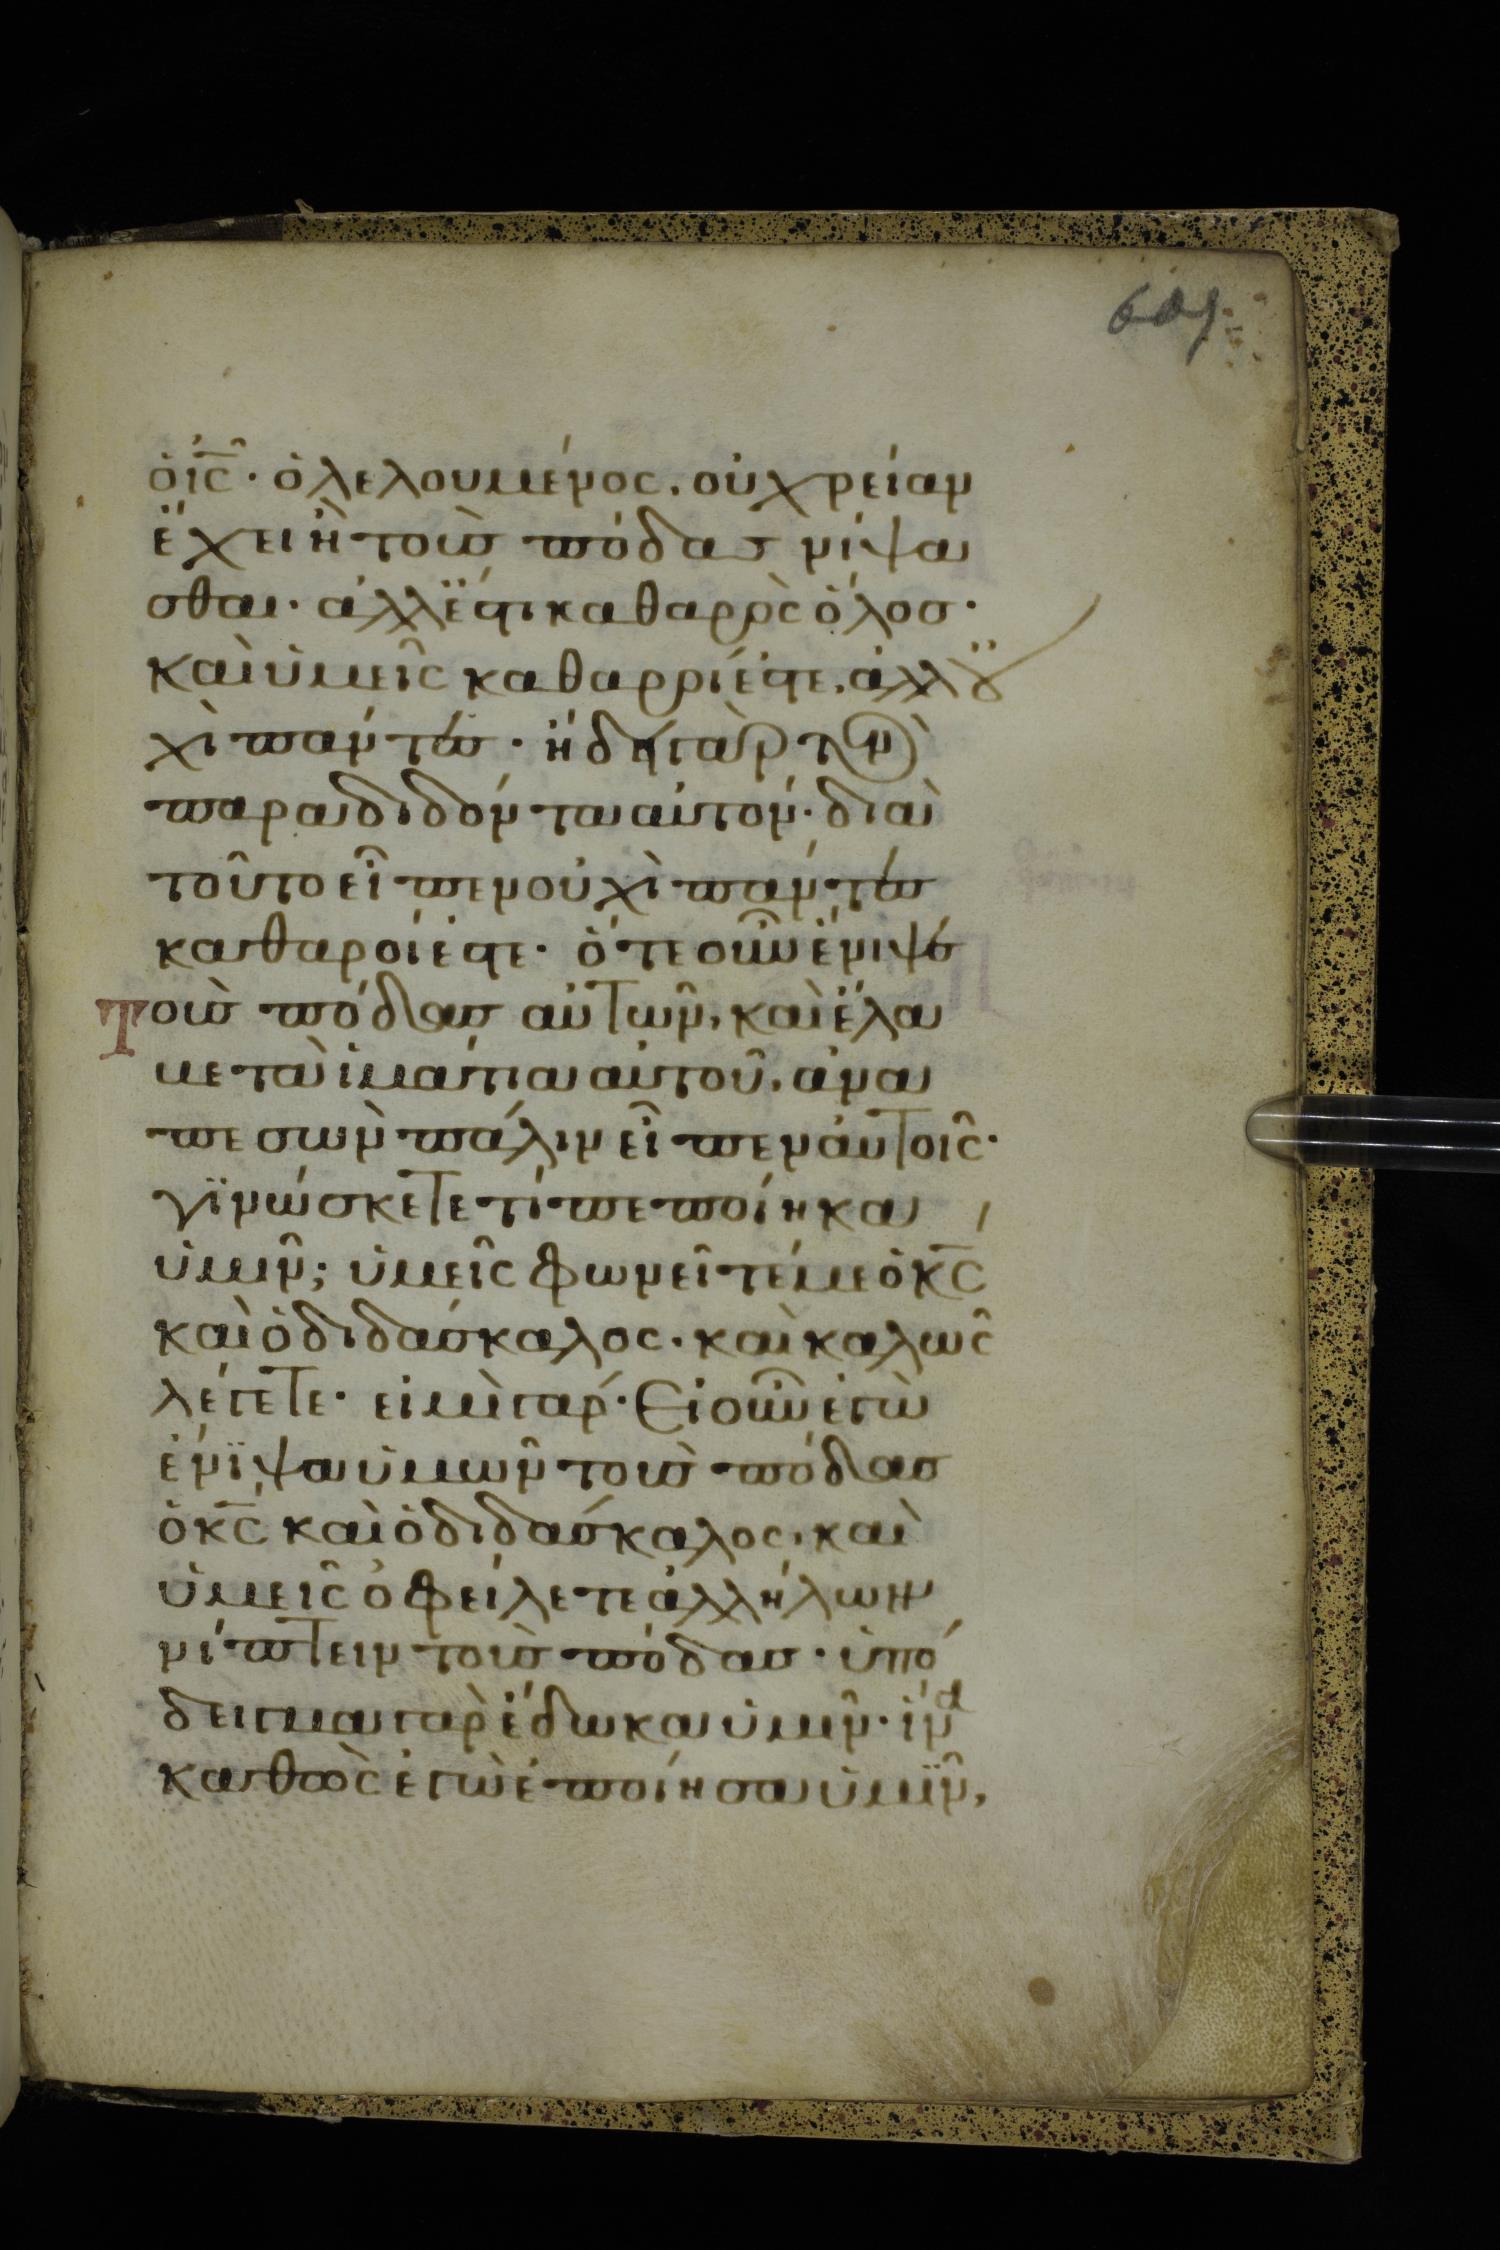 ὁ ις̅· ὁ λελουμένος, οὐ χρείαν
ἔχει ἢ τοὺς πόδας νίψα
σθαι· ἀλλ ἔστι καθαρὸς ὅλος·
καὶ ὑμεῖς καθαροί ἐστε, ἀλλ οὐ
χὶ πάντες· ἤδει γὰρ τὸν
παραδιδόντα αὐτόν· διὰ
τοῦτο εἶπεν οὐχὶ πάντες
καθαροί ἐστε· ὅτε οὖν ἔνιψε
Τοὺς πόδας αὐτῶν, καὶ ἔλα
βε τὰ ἱμάτια αὐτοῦ, ἀνα
πεσὼν πάλιν εἶπεν αὐτοῖς·
γϊνώσκετε τί πεποίηκα
ὑμῖν; ὑμεῖς φωνεῖτέ με ὁ κς̅
καὶ ὁ διδάσκαλος· καὶ καλῶς
λέγετε· εἰμὶ γάρ· Εἰ οὖν ἐγὼ
ἔνϊψα ὑμῶν τοὺς πόδας
ὁ κς̅ καὶ ὁ διδάσκαλος, καὶ
ὑμεῖς ὀφείλετε ἀλλήλων
νίπτειν τοὺς πόδας· ὑπό
δειγμα γὰρ ἔδωκα ὑμῖν· ἵνα
καθὼς ἐγὼ ἐποίησα ὑμῖν,